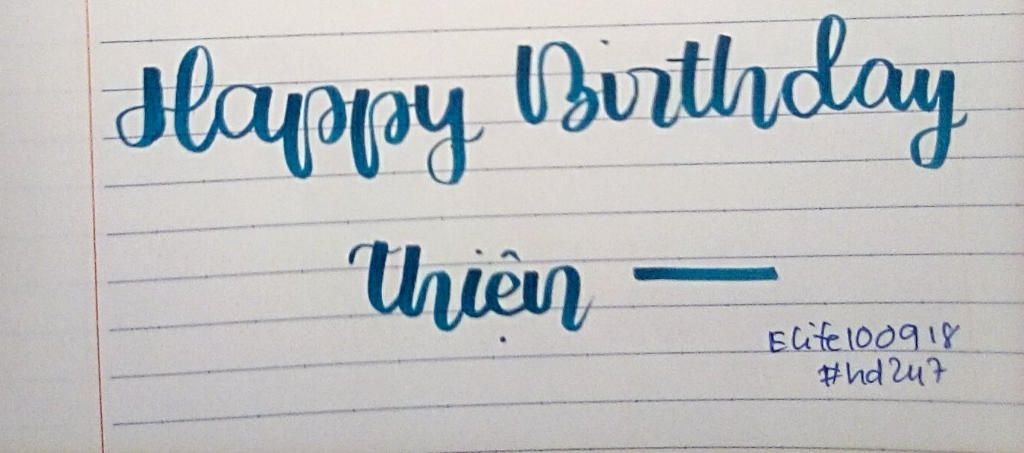 Happy Birthday
Thiện —
Elife100918
#hd247